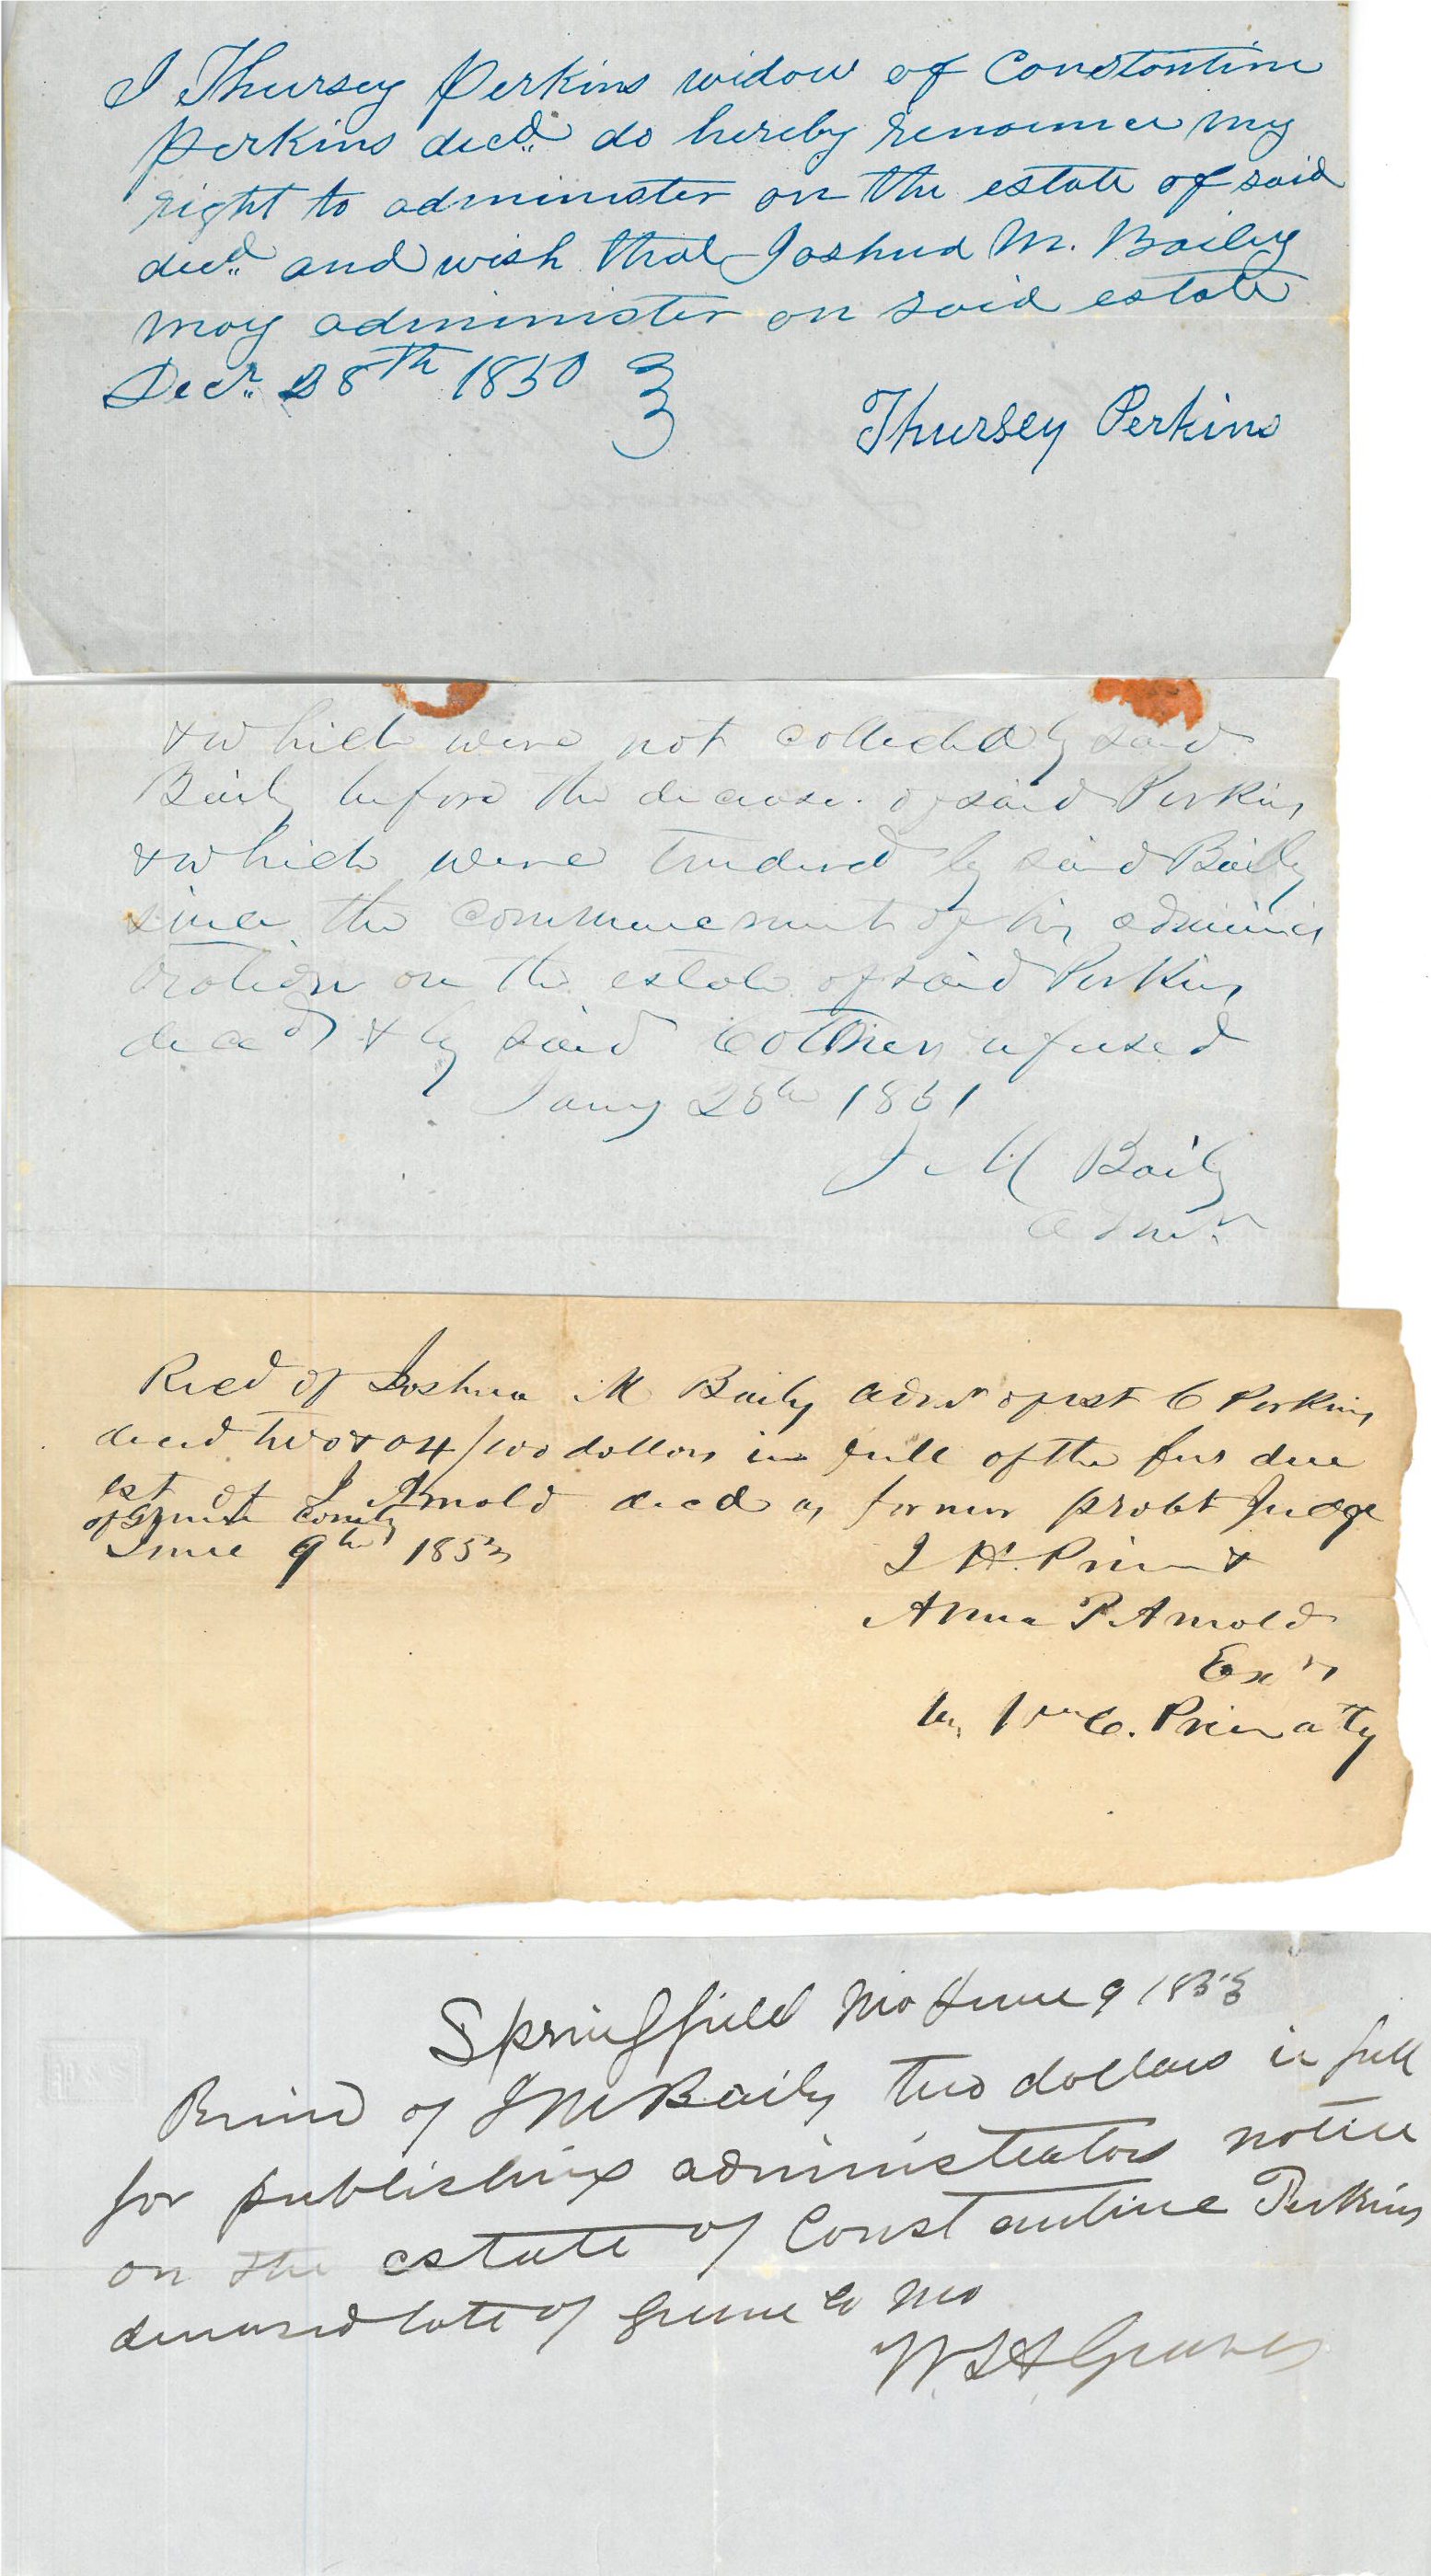 I Thursey Perkins widow of Constantine
Perkins decd. do hereby renounce my
right to administer on the estate of said
decd. and wish that Joshua M. Baily
may administer on said estate
Decr. 28th 1850
Thursey Perkins
& which were not collected by said
Baily before the decease of said Perkins
& which were tendered by said Baily
since the commencement of his adminis
tration on the estate of said Perkins
decd & by said refused
Jany 28th 1851
J M Baily
Admr.
Recd of Joshua M Baily admr of est C Perkins
decd two & 04/100 dollars in full of the fees due
est of J Arnold decd as former probt Judge
of Greene County
June 9th 1853
J H. &
Anna P Arnold
Exrs
by Wm C. Price atty
Springfield Mo June 9 1853
Recvd of J M Baily two dollars in full
for publishing administrators notice
on the estate of Constantine Perkins
deceased late of Greene Co Mo
Graves